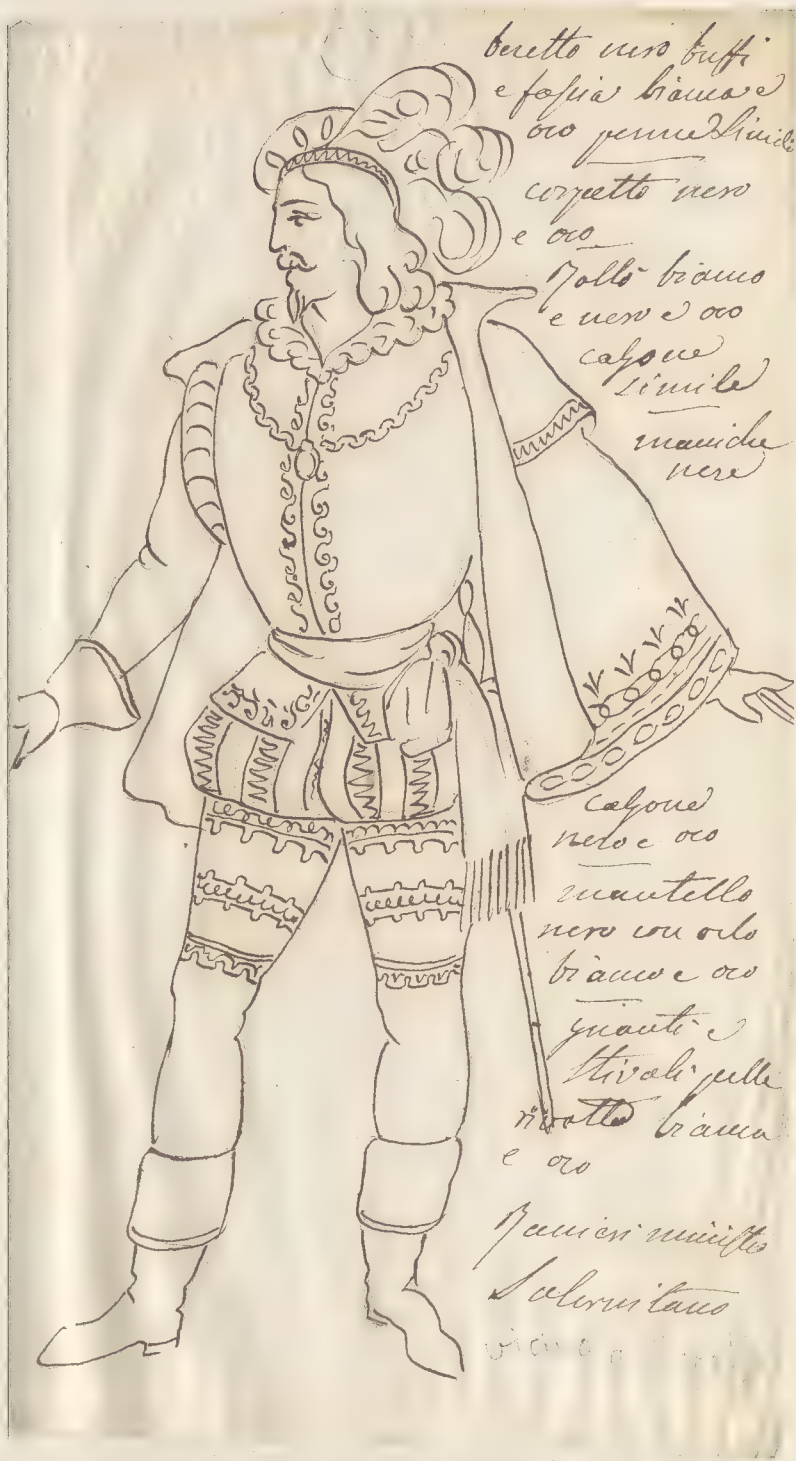 beretto nero buffi
e fassia bianca e
oro penne simili
corpetto nero
e oro
bianco
e nero e oro
calzone
simile
maniche
nere
calzone
nero e oro
mantello
nero con orlo
bianco e oro
guanti e
stivali pelle
bianca
e oro
Ranieri ministro
Salernitano